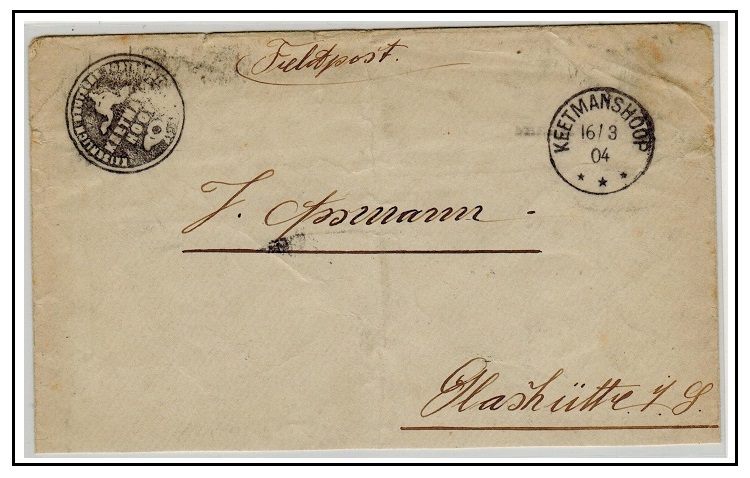 Fieldpost.
KEETMANSHOOP
16/3
04
J. Assmann -
Glashütte i/S.